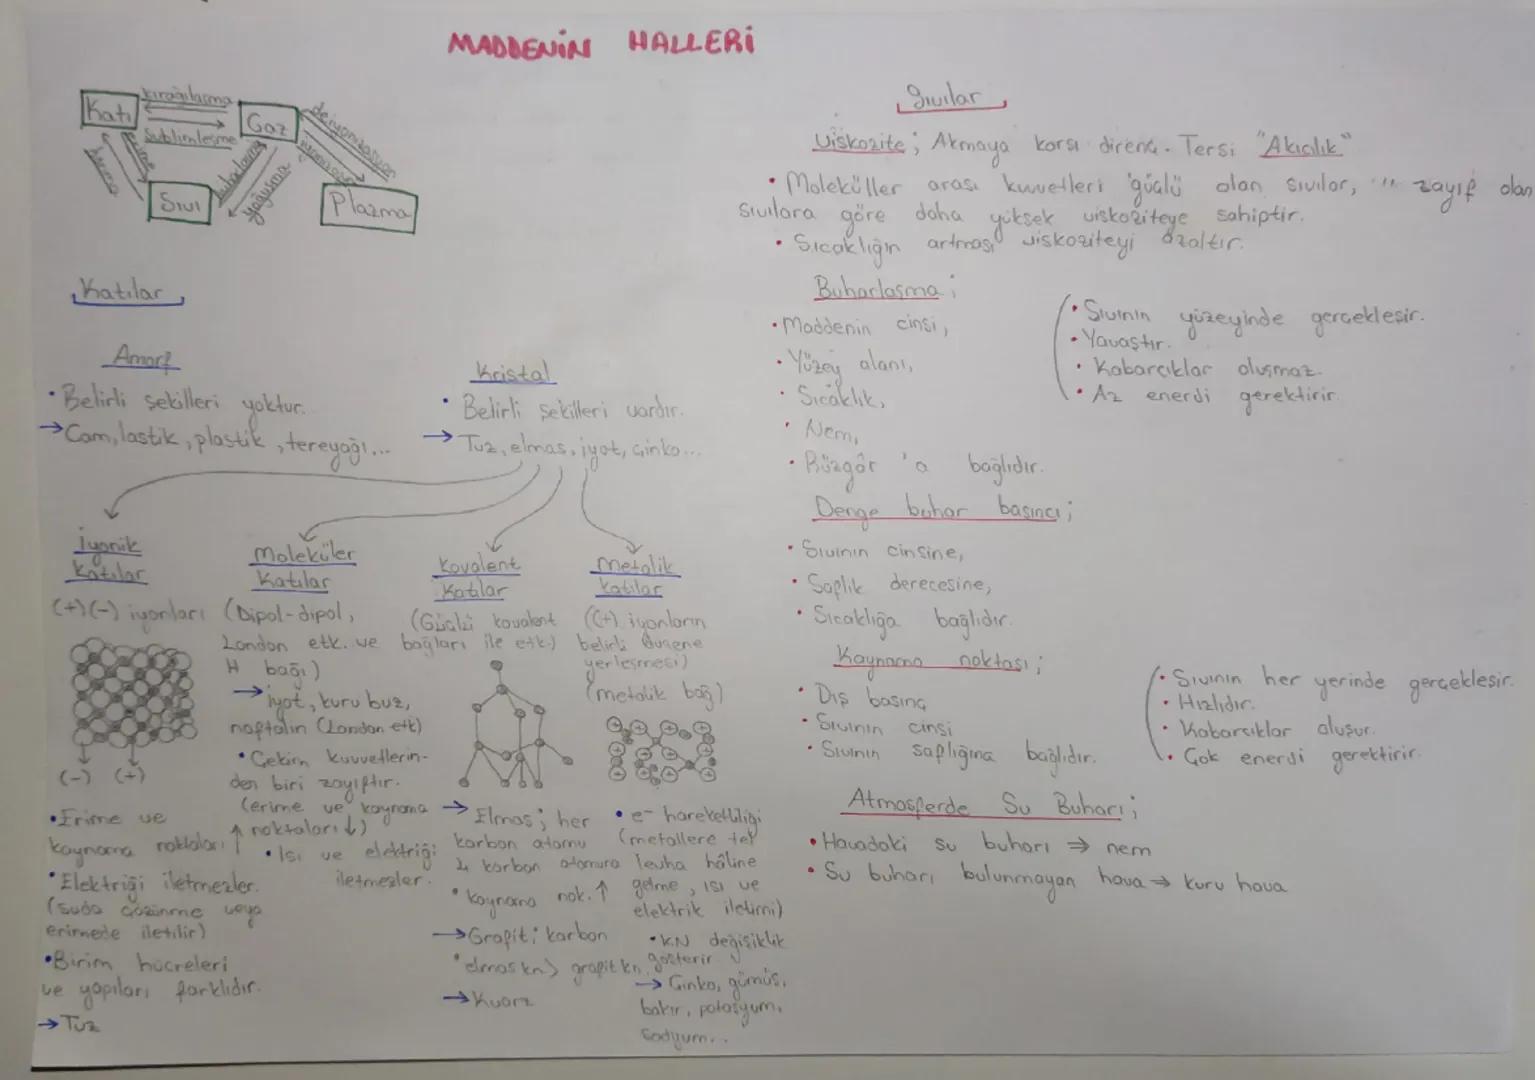 MADDENİN HALLERİ
Katı
kırağılaşma
Süblimleşme
Gaz
deiyonizasyon
iyonizasyon
Plazma
erime
donma
Sıvı
buharlaşma
yoğuşma
Katılar
Amorf
• Belirli şekilleri yoktur.
→ Cam, lastik, plastik, tereyağı...
Kristal
• Belirli şekilleri vardır.
→ Tuz, elmas, iyot, çinko...
İyonik
Katılar
(+)(-) iyonları
(-) (+)
• Erime ve
kaynama noktaları ↑
• Elektriği iletmezler.
(suda çözünme veya
erimede iletilir)
• Birim hücreleri
ve yapıları farklıdır.
→ Tuz
Moleküler
Katılar
(Dipol-dipol,
London etk. ve
H bağı)
→ iyot, kuru buz,
naftalin (London etk)
• Çekim kuvvetlerin-
den biri zayıftır.
(erime ve kaynama
noktaları ↓)
• Isı ve elektriği
iletmezler.
Kovalent
Katılar
(Güçlü kovalent
bağları ile etk.)
→ Elmas; her
karbon atomu
4 karbon atomuna
• kaynama nok. ↑
→ Grafit; karbon
• elmas kn > grafit kn
→ Kuarz
Metalik
Katılar
((+) iyonların
belirli düzene
yerleşmesi)
(metalik bağ)
• e⁻ hareketliliği
(metallere tel
levha hâline
gelme, ısı ve
elektrik iletimi)
• K.N değişiklik
gösterir.
→ Çinko, gümüş,
bakır, potasyum,
Sodyum..
Sıvılar
Viskozite; Akmaya karşı direnç. Tersi "Akıcılık"
• Moleküller arası kuvvetleri güçlü olan sıvılar, " " zayıf olan
sıvılara göre daha yüksek viskoziteye sahiptir.
• Sıcaklığın artması viskoziteyi azaltır.
Buharlaşma;
• Maddenin cinsi,
• Yüzey alanı,
• Sıcaklık,
• Nem,
• Rüzgâr 'a bağlıdır.
• Sıvının yüzeyinde gerçekleşir.
• Yavaştır.
• Kabarcıklar oluşmaz.
• Az enerji gerektirir.
Denge buhar basıncı;
• Sıvının cinsine,
• Saflık derecesine,
• Sıcaklığa bağlıdır.
Kaynama noktası;
• Dış basınç
• Sıvının cinsi
• Sıvının saflığına bağlıdır.
• Sıvının her yerinde gerçekleşir.
• Hızlıdır.
• Kabarcıklar oluşur.
• Çok enerji gerektirir.
Atmosferde Su Buharı;
• Havadaki su buharı ⇒ nem
• Su buharı bulunmayan hava → kuru hava